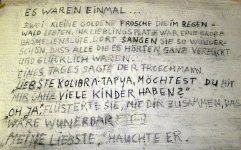 ES WAREN EINMAL...
ZWEI KLEINE GOLDENE FRÖSCHE DIE IM REGEN-
WALD LEBTEN, IHR LIEBLINGSPLATZ WAR EINE GROßE
BROMELIENBLÜTE, DORT SANGEN SIE SO WUNDER-
SCHÖN, DASS ALLE DIE ES HÖRTEN, GANZ VERZÜCKT
UND GLÜCKLICH WAREN.
EINES TAGES SAGTE DER FROSCHMANN
„LIEBSTE KOLIBRA-TAPYA, MÖCHTEST DU MIT
MIR GANZ VIELE KINDER HABEN?"
„OH JA", FLÜSTERTE SIE, „MIT DIR ZUSAMMEN, DAS
WÄRE WUNERBAR
MEINE LIEBSTE," HAUCHTE ER.